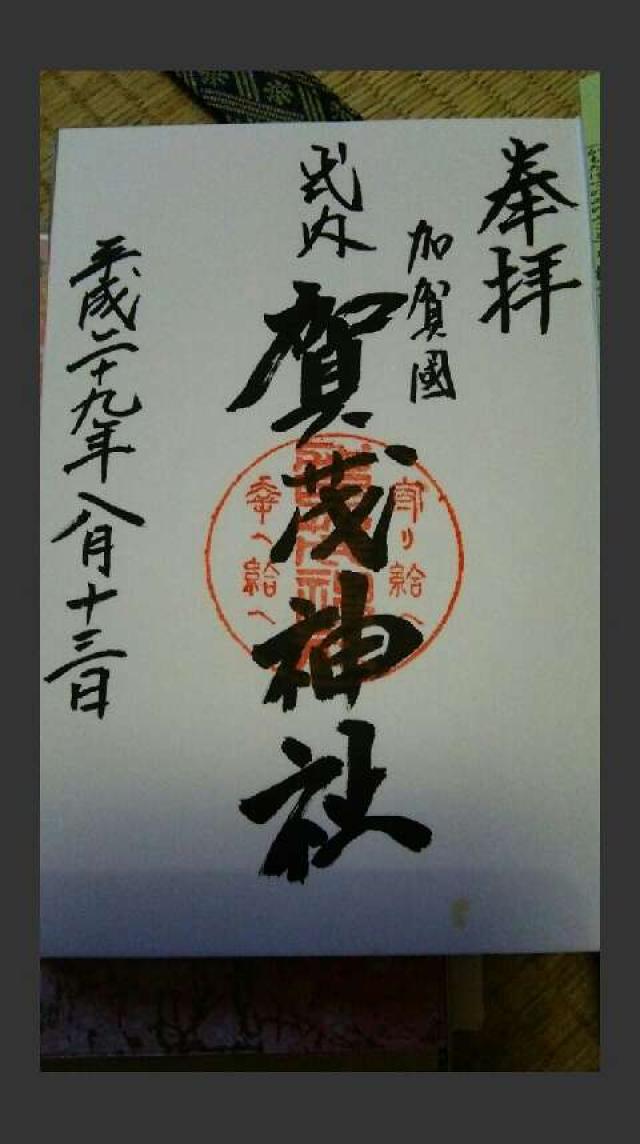 奉拝
加賀國
式内
賀茂神社
守り給へ
幸へ給へ
平成二十九年八月十三日